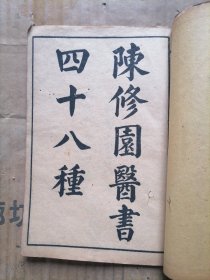 陳修園醫書
四十八種